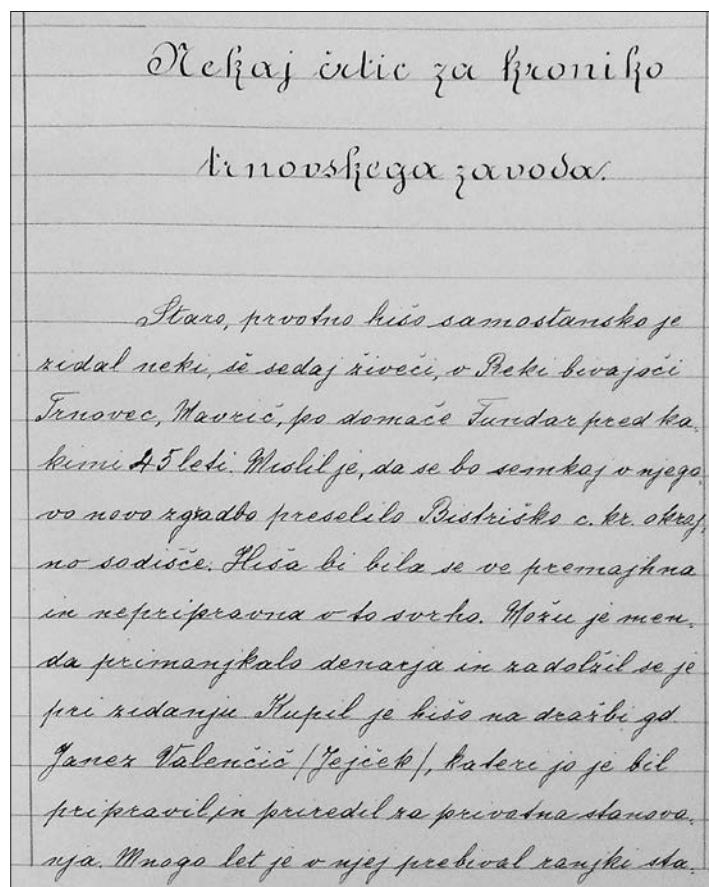 Nekaj črtic za kroniko
trnovskega zavoda.
Staro, prvotno hišo samostansko je
zidal neki, še sedaj živeči, v Reki bivajoči
Trnovec, Mavrič, po domače Fundar pred ka-
kimi 45 leti. Mislil je, da se bo semkaj v njego-
vo novo zgradbo preselilo Bistriško c. kr. okraj-
no sodišče. Hiša bi bila se ve premajhna
in nepripravna v to svrho. Možu je men-
da primanjkalo denarja in zadolžil se je
pri zidanju Kupil je hišo na dražbi gd.
Janez Valenčič (Jejček), kateri jo je bil
pripravil in priredil za privatna stanova-
nja. Mnogo let je v njej prebival ranjki sta-